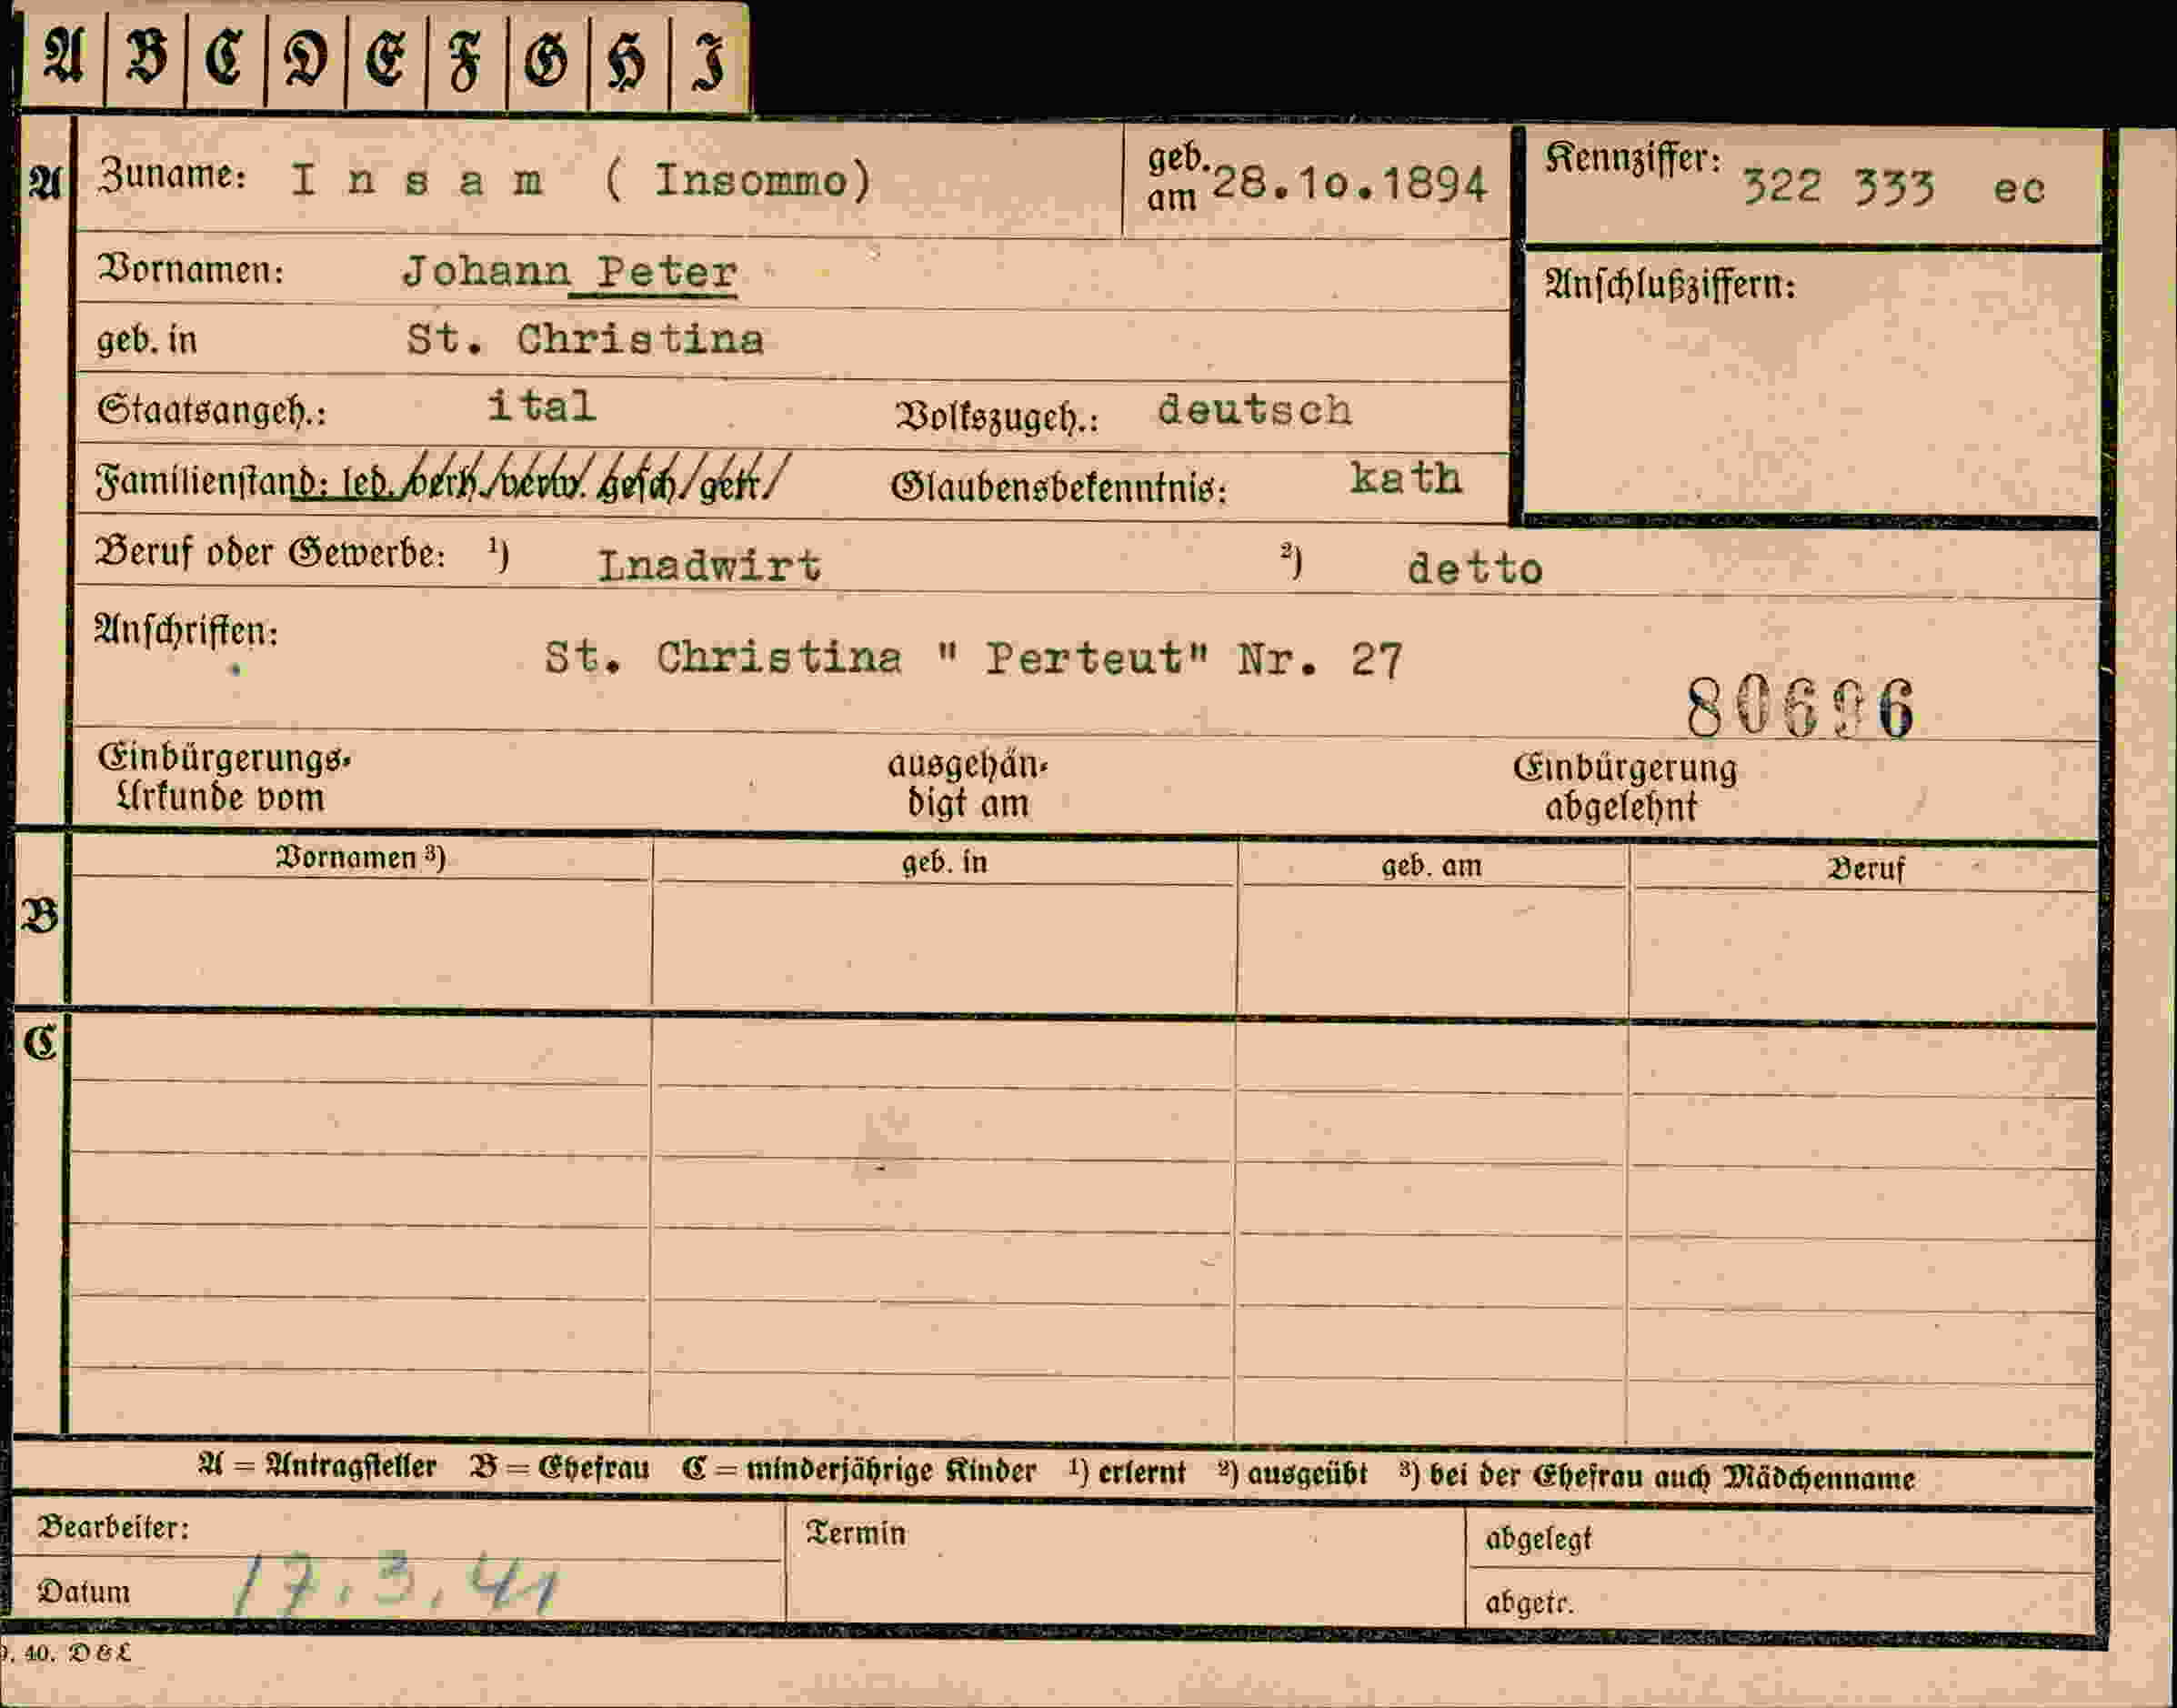 A B C D E F G H I
A Zuname: I n s a m ( Insommo) geb. am 28.10.1894 Kennziffer: 322 333 ec
Vornamen: Johann Peter
Anschlußziffern:
geb. in St. Christina
Staatsangeh.: ital Volkszugeh.: deutsch
Familienstand: led. verh. verw. gesch. getr. Glaubensbekenntnis: kath
Beruf oder Gewerbe: ¹) Lnadwirt ²) detto
Anschriften: St. Christina " Perteut" Nr. 27
80696
Einbürgerungs- ausgehän- Einbürgerung
Urkunde vom digt am abgelehnt
Vornamen ³) geb. in geb. am Beruf
B
C
A = Antragsteller B = Ehefrau C = minderjährige Kinder ¹) erlernt ²) ausgeübt ³) bei der Ehefrau auch Mädchenname
Bearbeiter: Termin abgelegt
Datum 17.3.41 abgetr.
40. D & L